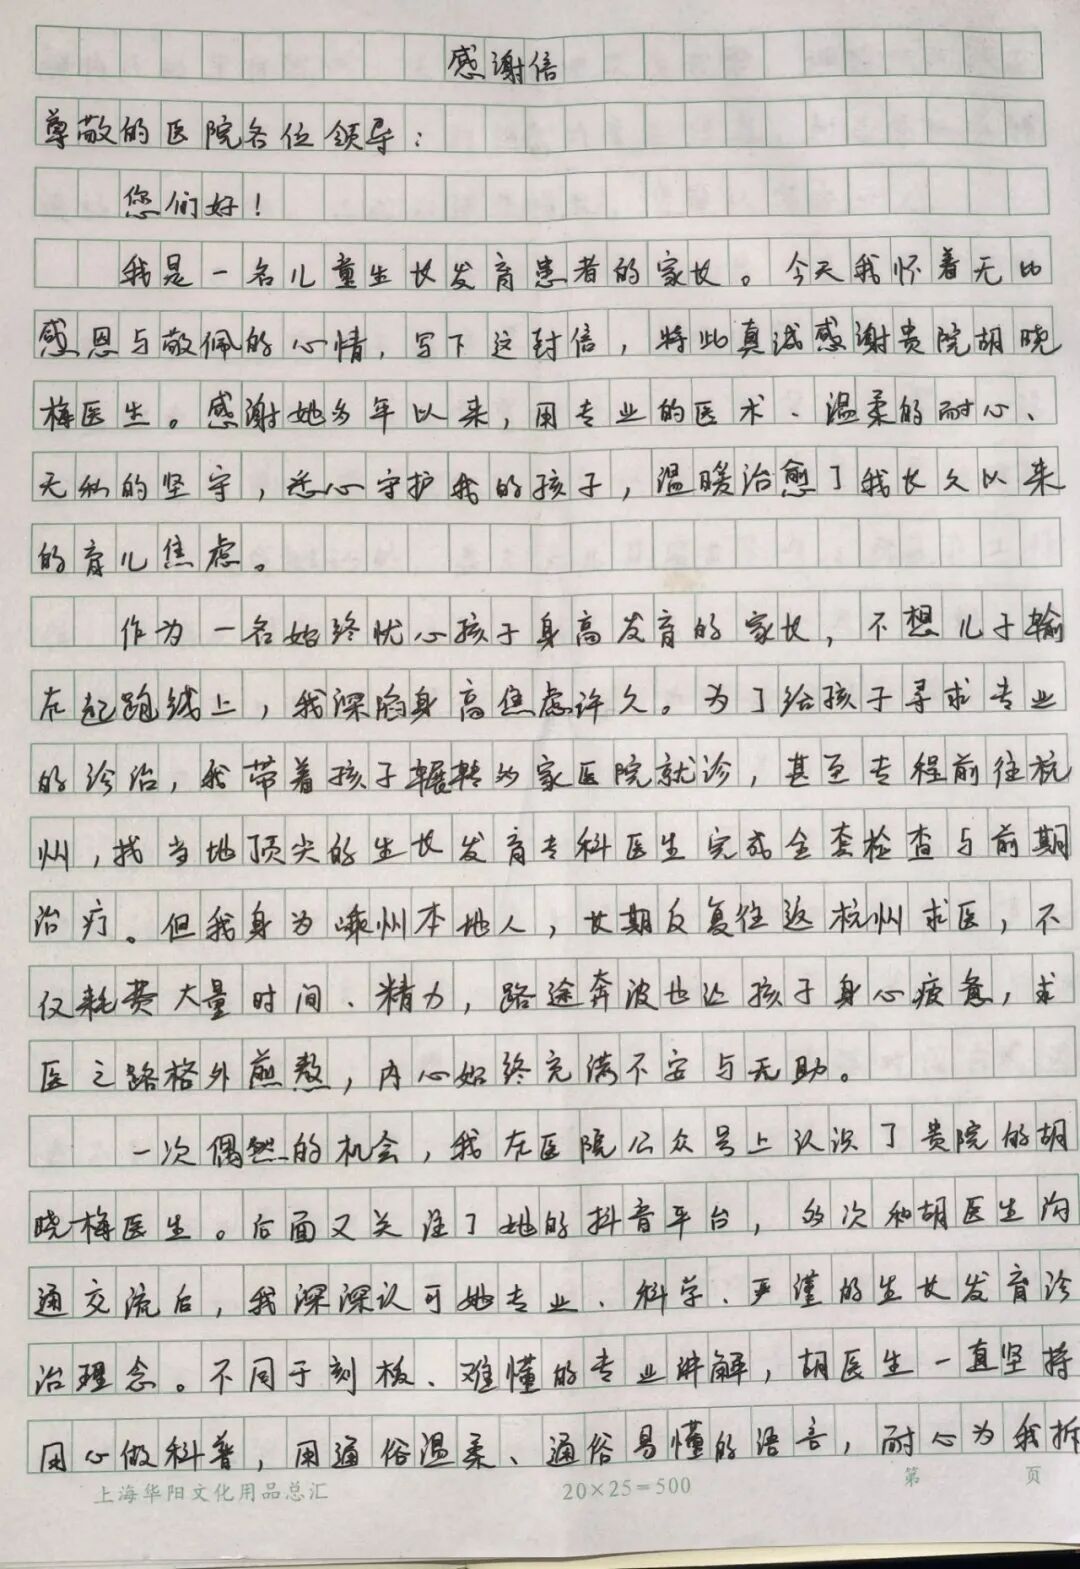 感谢信
尊敬的医院各位领导：
您们好！
我是一名儿童生长发育患者的家长。今天我怀着无比
感恩与敬佩的心情，写下这封信，特此真诚感谢贵院胡晓
梅医生。感谢她多年以来，用专业的医术、温柔的耐心、
无私的坚守，悉心守护我的孩子，温暖治愈了我长久以来
的育儿焦虑。
作为一名始终忧心孩子身高发育的家长，不想儿子输
在起跑线上，我深陷身高焦虑许久。为了给孩子寻求专业
的诊治，我带着孩子辗转多家医院就诊，甚至专程前往杭
州，找当地顶尖的生长发育专科医生完成全套检查与前期
治疗。但我身为嵊州本地人，长期反复往返杭州求医，不
仅耗费大量时间、精力，路途奔波也让孩子身心疲惫，求
医之路格外煎熬，内心始终充满不安与无助。
一次偶然的机会，我在医院公众号上认识了贵院的胡
晓梅医生。后面又关注了她的抖音平台，多次和胡医生沟
通交流后，我深深认可她专业、科学、严谨的生长发育诊
治理念。不同于刻板、难懂的专业讲解，胡医生一直坚持
用心做科普，用通俗温柔、通俗易懂的语言，耐心为我拆
上海华阳文化用品总汇 20×25=500 第 页